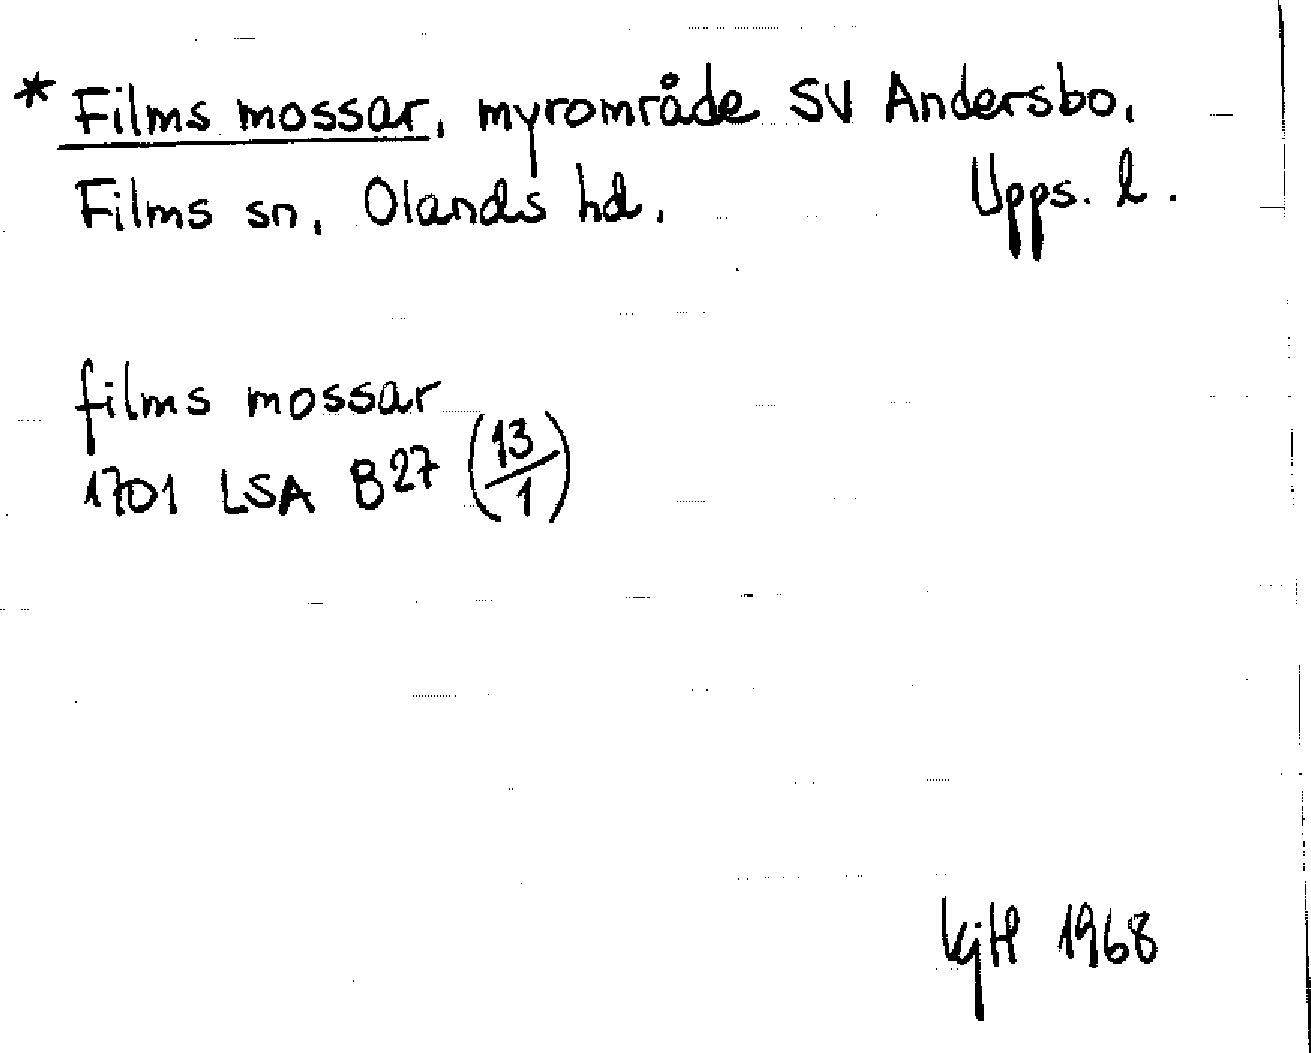 * Films mossar, myrområde SV Andersbo,
Films sn, Olands hd. Upps. l.
films mossar
1701 LSA B27 (13/1)
KjH 1968